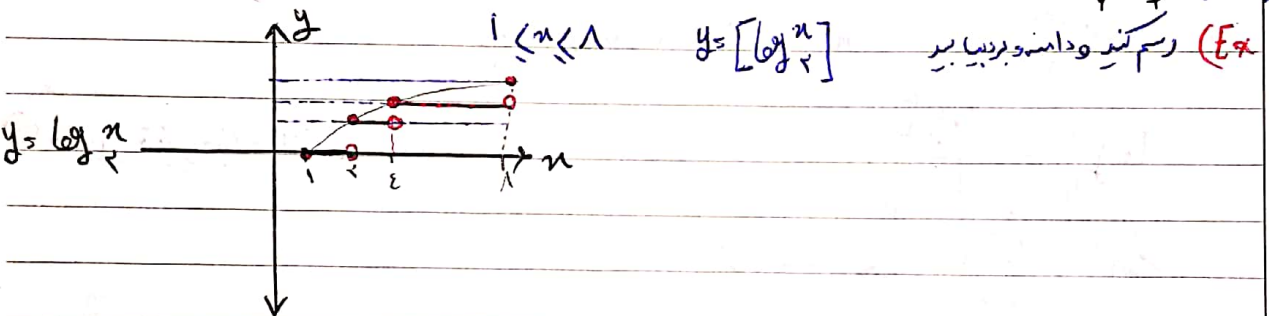 Ex) رسم کنید و دامنه و برد بیابید y = [log₂ˣ] ۱ ≤ x ≤ ۸
y
y = log₂ˣ
x
۱ ۲ ٤ ۸